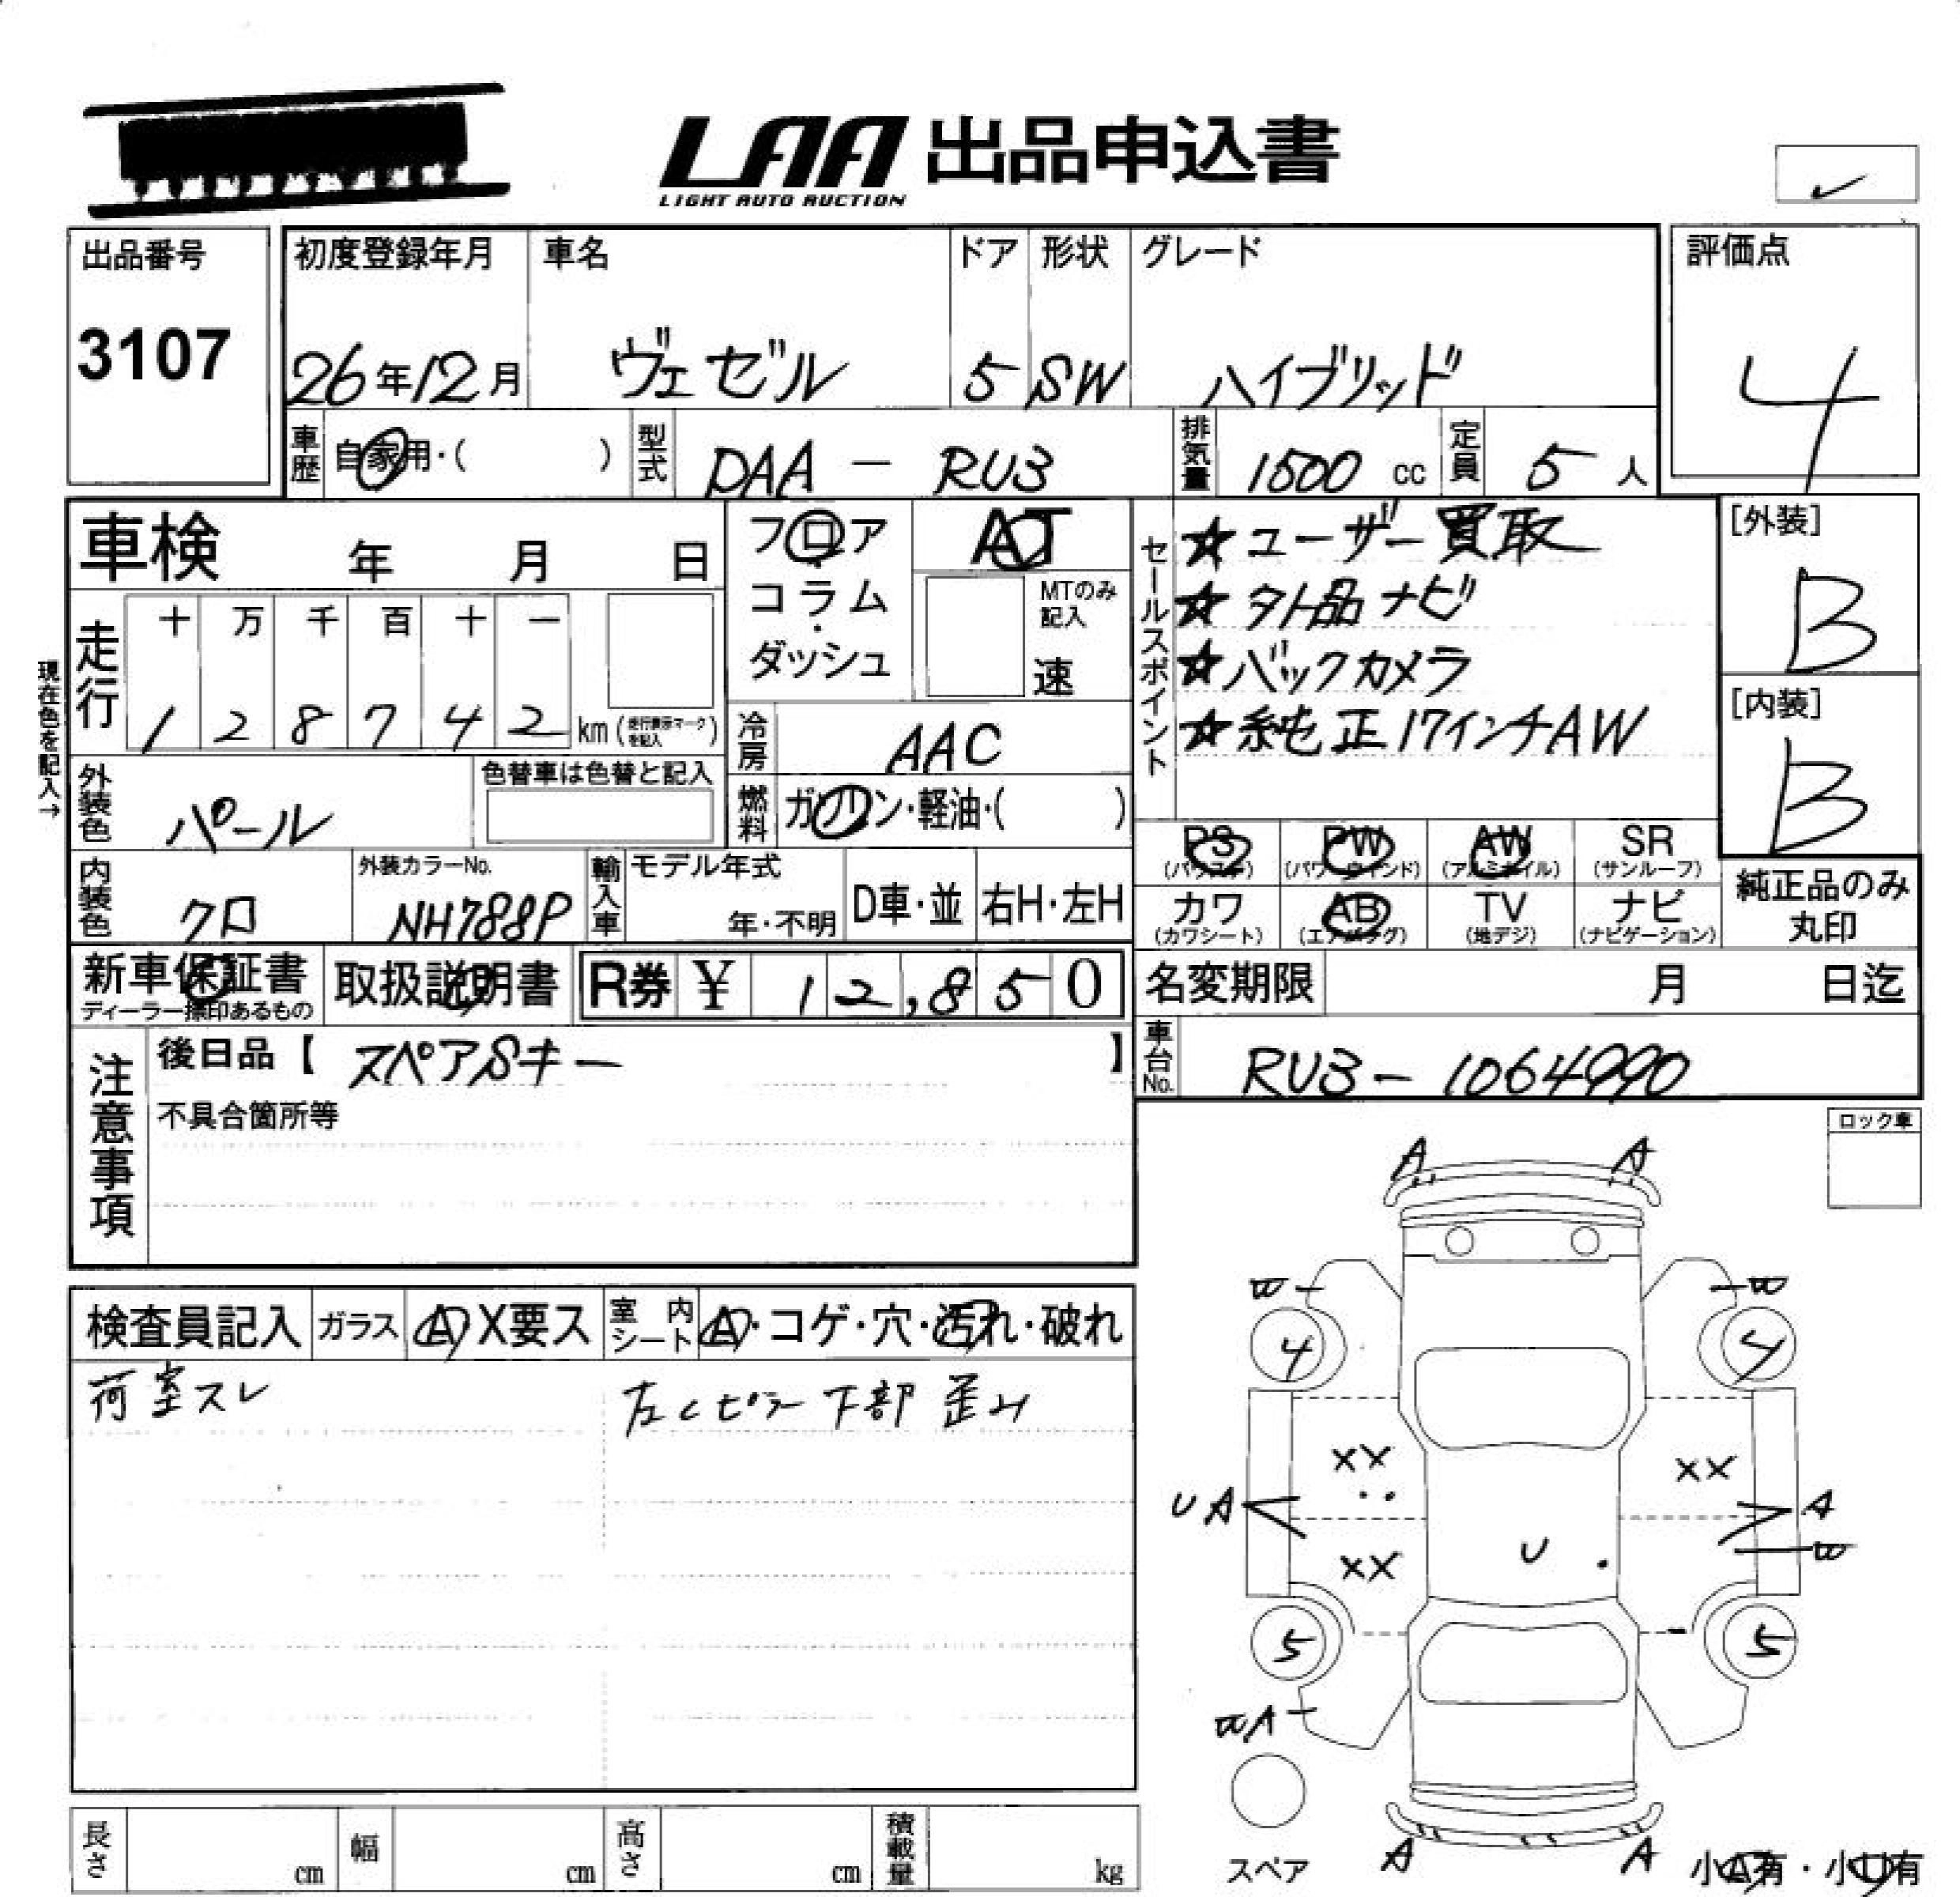 LAA 出品申込書
LIGHT AUTO AUCTION
出品番号
3107
初度登録年月
26年12月
車名
ヴェゼル
ドア
5
形状
SW
グレード
ハイブリッド
評価点
4
車歴 自家用・( )
型式 DAA - RU3
排気量 1500 cc
定員 5 人
車検 年 月 日
フロア
コラム
・
ダッシュ
AT
MTのみ
記入
速
セールスポイント
☆ユーザー買取
☆外品ナビ
☆バックカメラ
☆純正17インチAW
[外装]
B
[内装]
B
現在色を記入→
走行
十 万 千 百 十 一
1 2 8 7 4 2 km (走行表示マークを記入)
冷房 AAC
外装色 パール
色替車は色替と記入
燃料 ガソリン・軽油・( )
PS (パワステ)
PW (パワーウインド)
AW (アルミホイル)
SR (サンルーフ)
内装色 クロ
外装カラーNo.
NH788P
輸入車
モデル年式
年・不明
D車・並
右H・左H
カワ (カワシート)
AB (エアバッグ)
TV (地デジ)
ナビ (ナビゲーション)
純正品のみ
丸印
新車保証書
ディーラー捺印あるもの
取扱説明書
R券 ¥ 12,850
名変期限 月 日迄
注意事項
後日品【 スペアSキー 】
不具合箇所等
車台No. RU3-1064990
ロック車
検査員記入
ガラス A X要ス
室内シート A・コゲ・穴・汚れ・破れ
荷室スレ
左Cピラー下部歪み
A A
4 4
XX XX
UA A
XX U
5 5
A A
スペア
小A有・小U有
長さ cm
幅 cm
高さ cm
積載量 kg